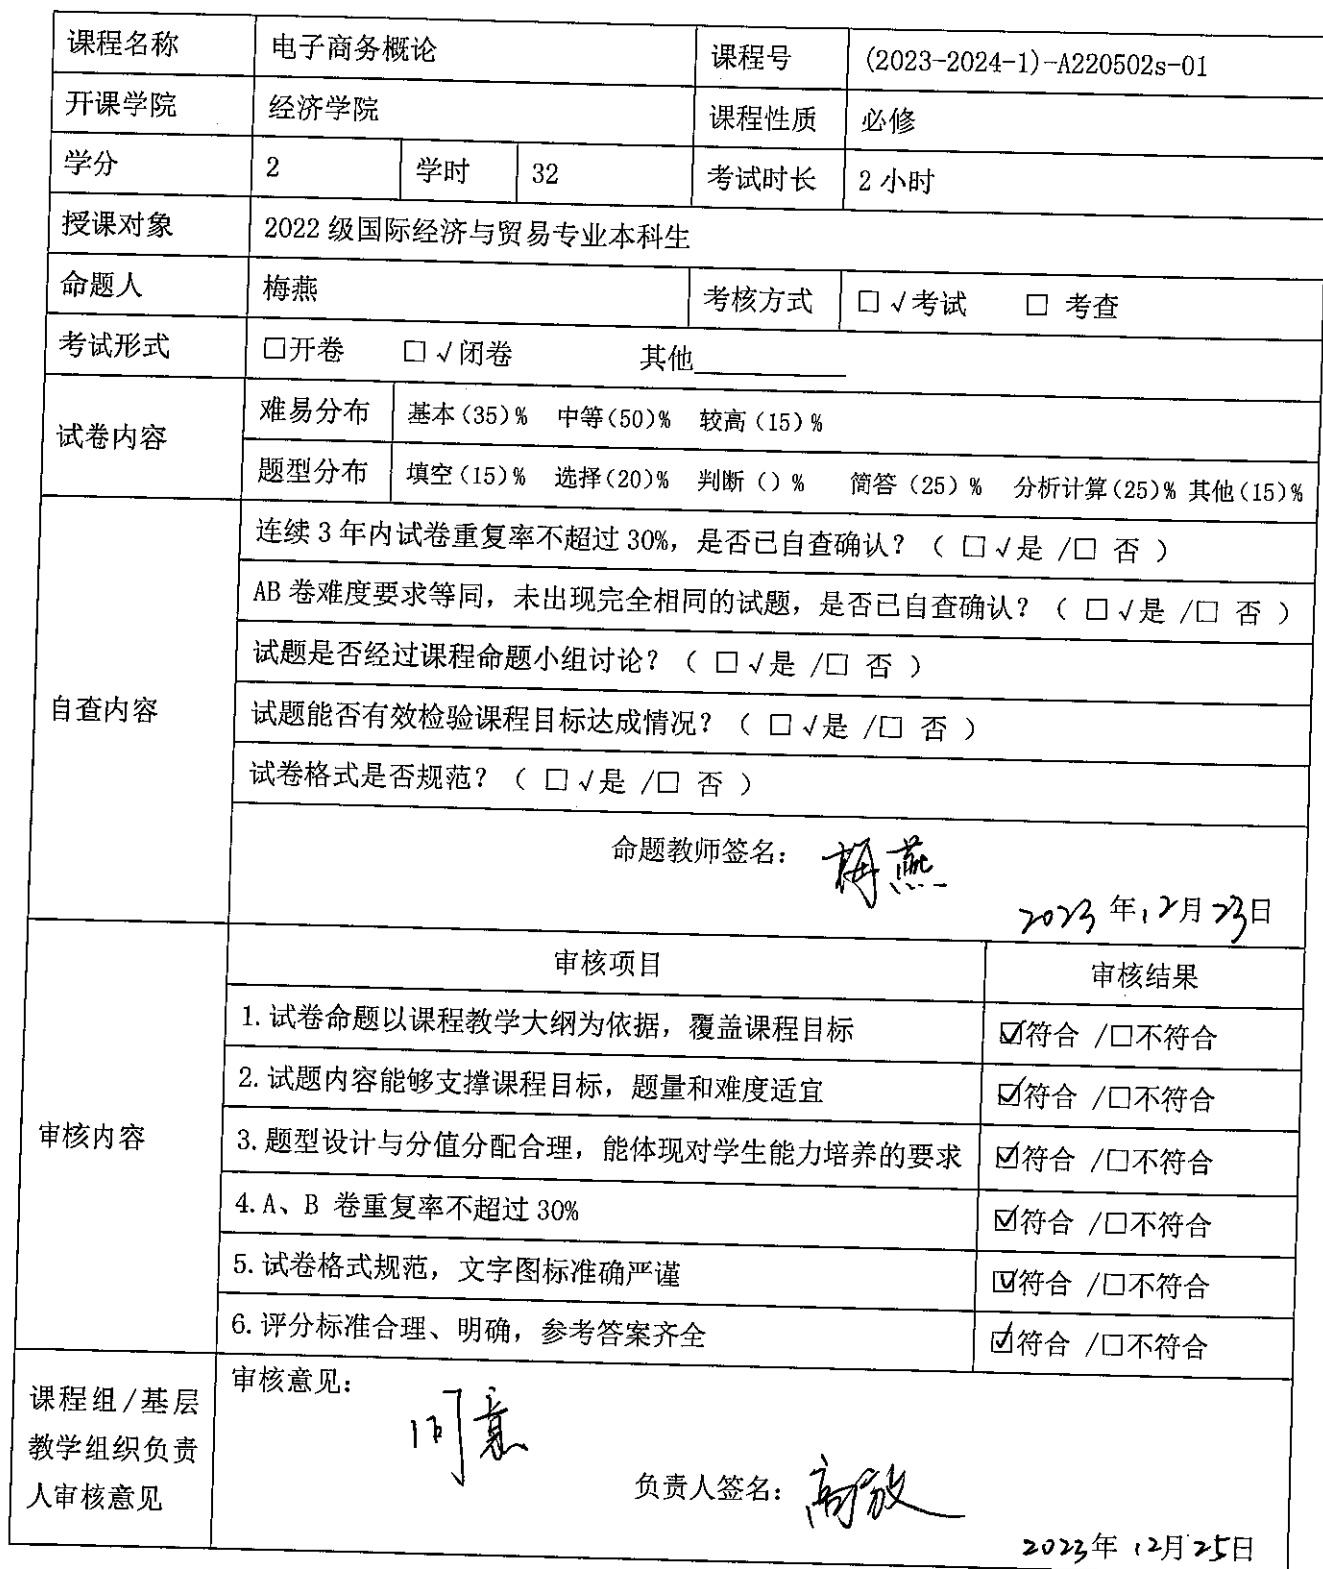 课程名称 电子商务概论 课程号 (2023-2024-1)-A220502s-01
开课学院 经济学院 课程性质 必修
学分 2 学时 32 考试时长 2 小时
授课对象 2022 级国际经济与贸易专业本科生
命题人 梅燕 考核方式 □√考试 □ 考查
考试形式 □开卷 □√闭卷 其他
试卷内容 难易分布 基本(35)% 中等(50)% 较高(15)%
题型分布 填空(15)% 选择(20)% 判断()% 简答(25)% 分析计算(25)% 其他(15)%
自查内容
连续 3 年内试卷重复率不超过 30%，是否已自查确认？（ □√是 /□ 否 ）
AB 卷难度要求等同，未出现完全相同的试题，是否已自查确认？（ □√是 /□ 否 ）
试题是否经过课程命题小组讨论？（ □√是 /□ 否 ）
试题能否有效检验课程目标达成情况？（ □√是 /□ 否 ）
试卷格式是否规范？（ □√是 /□ 否 ）
命题教师签名： 梅燕
2023 年 12月 23日
审核内容
审核项目 审核结果
1.试卷命题以课程教学大纲为依据，覆盖课程目标 ☑符合 /□不符合
2.试题内容能够支撑课程目标，题量和难度适宜 ☑符合 /□不符合
3.题型设计与分值分配合理，能体现对学生能力培养的要求 ☑符合 /□不符合
4.A、B 卷重复率不超过 30% ☑符合 /□不符合
5.试卷格式规范，文字图标准确严谨 ☑符合 /□不符合
6.评分标准合理、明确，参考答案齐全 ☑符合 /□不符合
课程组/基层
教学组织负责
人审核意见
审核意见：
同意
负责人签名：
2023年 12月 25日